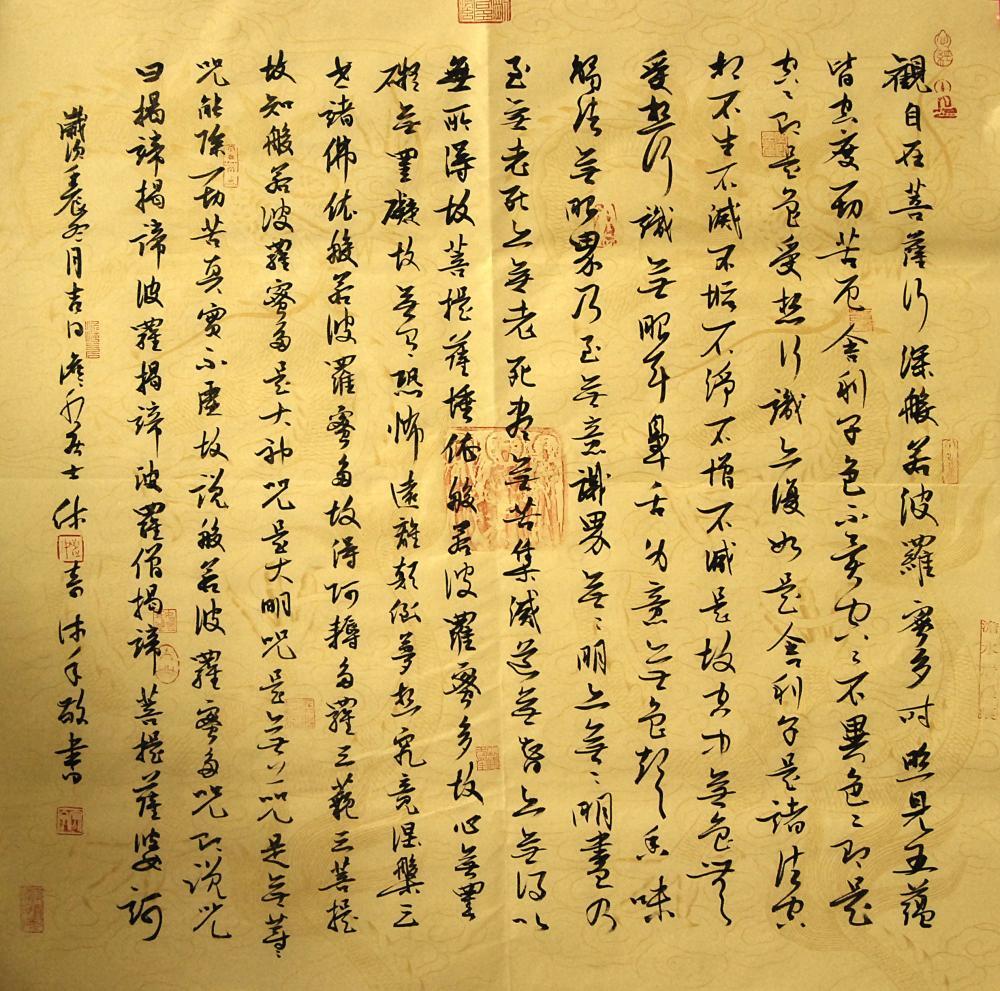 觀自在菩薩行深般若波羅蜜多時照見五蘊
皆空度一切苦厄舍利子色不異空〻不異色〻即是
空〻即是色受想行識亦復如是舍利子是諸法空
相不生不滅不垢不淨不增不減是故空中無色無
受想行識無眼耳鼻舌身意無色聲香味
觸法無眼界乃至無意識界無〻明亦無〻明盡乃
至無老死亦無老死盡無苦集滅道無智亦無得以
無所得故菩提薩埵依般若波羅蜜多故心無罣
礙無罣礙故無有恐怖遠離顛倒夢想究竟涅槃三
世諸佛依般若波羅蜜多故得阿耨多羅三藐三菩提
故知般若波羅蜜多是大神咒是大明咒是無上咒是無等〻
咒能除一切苦真實不虛故說般若波羅蜜多咒即說咒
曰揭諦揭諦波羅揭諦波羅僧揭諦菩提薩婆訶
歲次壬辰冬月吉日居士敬書